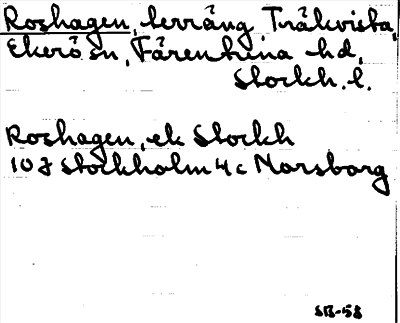 Roshagen, terräng Träkvista,
Ekerö sn, Färentuna hd,
Stockh. l.
Roshagen, ek Stockh
10J Stockholm 4c Norsborg
SB-58